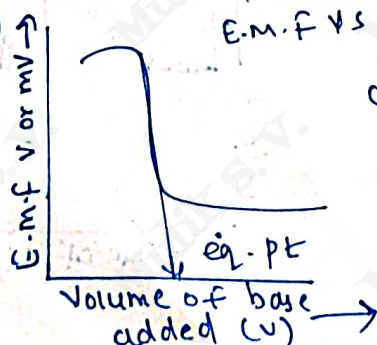 E.M.F VS
E.m.f v or mV →
eq. pt
Volume of base →
added (v)